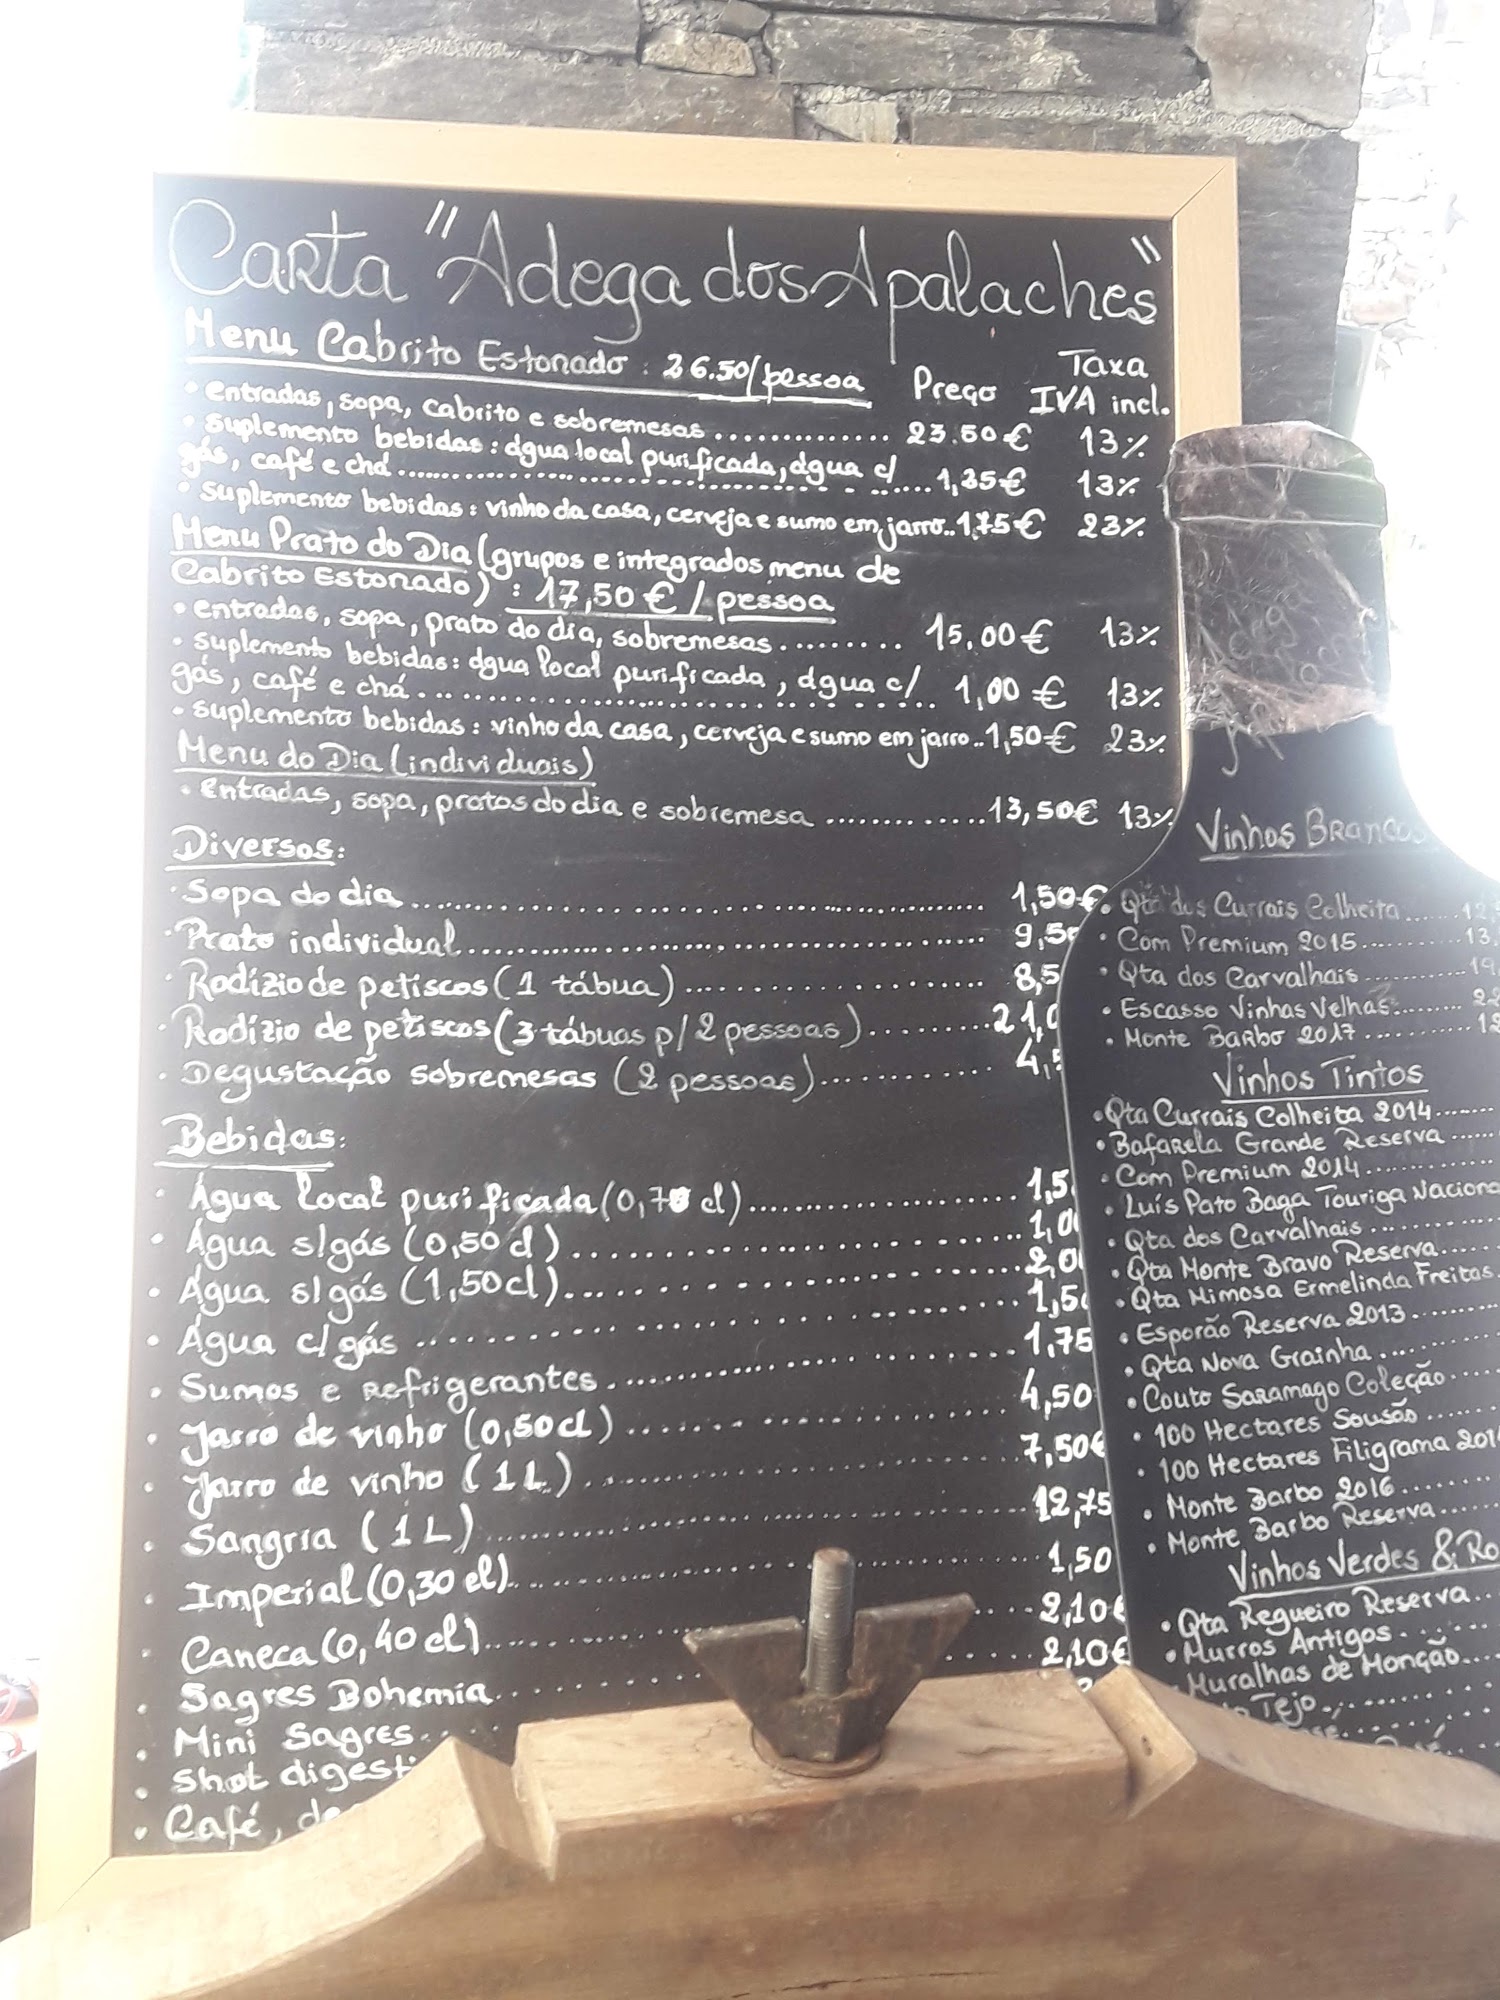 Carta "Adega dos Apalaches"
Menu Cabrito Estonado : 26.50/pessoa Preço Taxa IVA incl.
• entradas, sopa, cabrito e sobremesas .............. 23.50€ 13%
• suplemento bebidas: água local purificada, água c/
gás, café e chá ............ 1,25€ 13%
• suplemento bebidas: vinho da casa, cerveja e sumo em jarro.. 1,75€ 23%
Menu Prato do Dia (grupos e integrados menu de
Cabrito Estonado) : 17,50€ / pessoa
• entradas, sopa, prato do dia, sobremesas ......... 15,00€ 13%
• suplemento bebidas: água local purificada, água c/
gás, café e chá ............ 1,00€ 13%
• suplemento bebidas: vinho da casa, cerveja e sumo em jarro.. 1,50€ 23%
Menu do Dia (individuais)
• Entradas, sopa, pratos do dia e sobremesa ............. 13,50€ 13%
Diversos:
• Sopa do dia ............ 1,50€
• Prato individual ............ 9,50
• Rodízio de petiscos (1 tábua) ............ 8,5
• Rodízio de petiscos (3 tábuas p/ 2 pessoas) ............ 21,0
• Degustação sobremesas (2 pessoas) ............ 4,5
Bebidas:
• Água local purificada (0,70 cl) ............ 1,5
• Água s/gás (0,50 cl) ............ 1,00
• Água s/gás (1,50cl) ............ 2,00
• Água c/ gás ............ 1,50
• Sumos e Refrigerantes ............ 1,75
• Jarro de vinho (0,50cl) ............ 4,50
• Jarro de vinho (1L) ............ 7,50€
• Sangria (1L) ............ 12,75
• Imperial (0,30 cl) ............ 1,50
• Caneca (0,40 cl) ............ 2,10€
• Sagres Bohemia ............ 2,10€
• Mini Sagres
• Shot digest
• Café,
Vinhos Brancos
• Qta dos Currais Colheita ...... 12,
• Com Premium 2015 ............ 13.
• Qta dos Carvalhais ............ 19
• Escasso Vinhas Velhas ...... 22
• Monte Barbo 2017 ............ 12
Vinhos Tintos
• Qta Currais Colheita 2014
• Bafarela Grande Reserva
• Com Premium 2014
• Luís Pato Baga Touriga Naciona
• Qta dos Carvalhais
• Qta Monte Bravo Reserva
• Qta Mimosa Ermelinda Freitas
• Esporão Reserva 2013
• Qta Nova Grainha
• Couto Saramago Coleção
• 100 Hectares Sousão
• 100 Hectares Filigrama 201
• Monte Barbo 2016
• Monte Barbo Reserva
Vinhos Verdes & Ro
• Qta Regueiro Reserva
• Murros Antigos
• Muralhas de Monção
Tejo